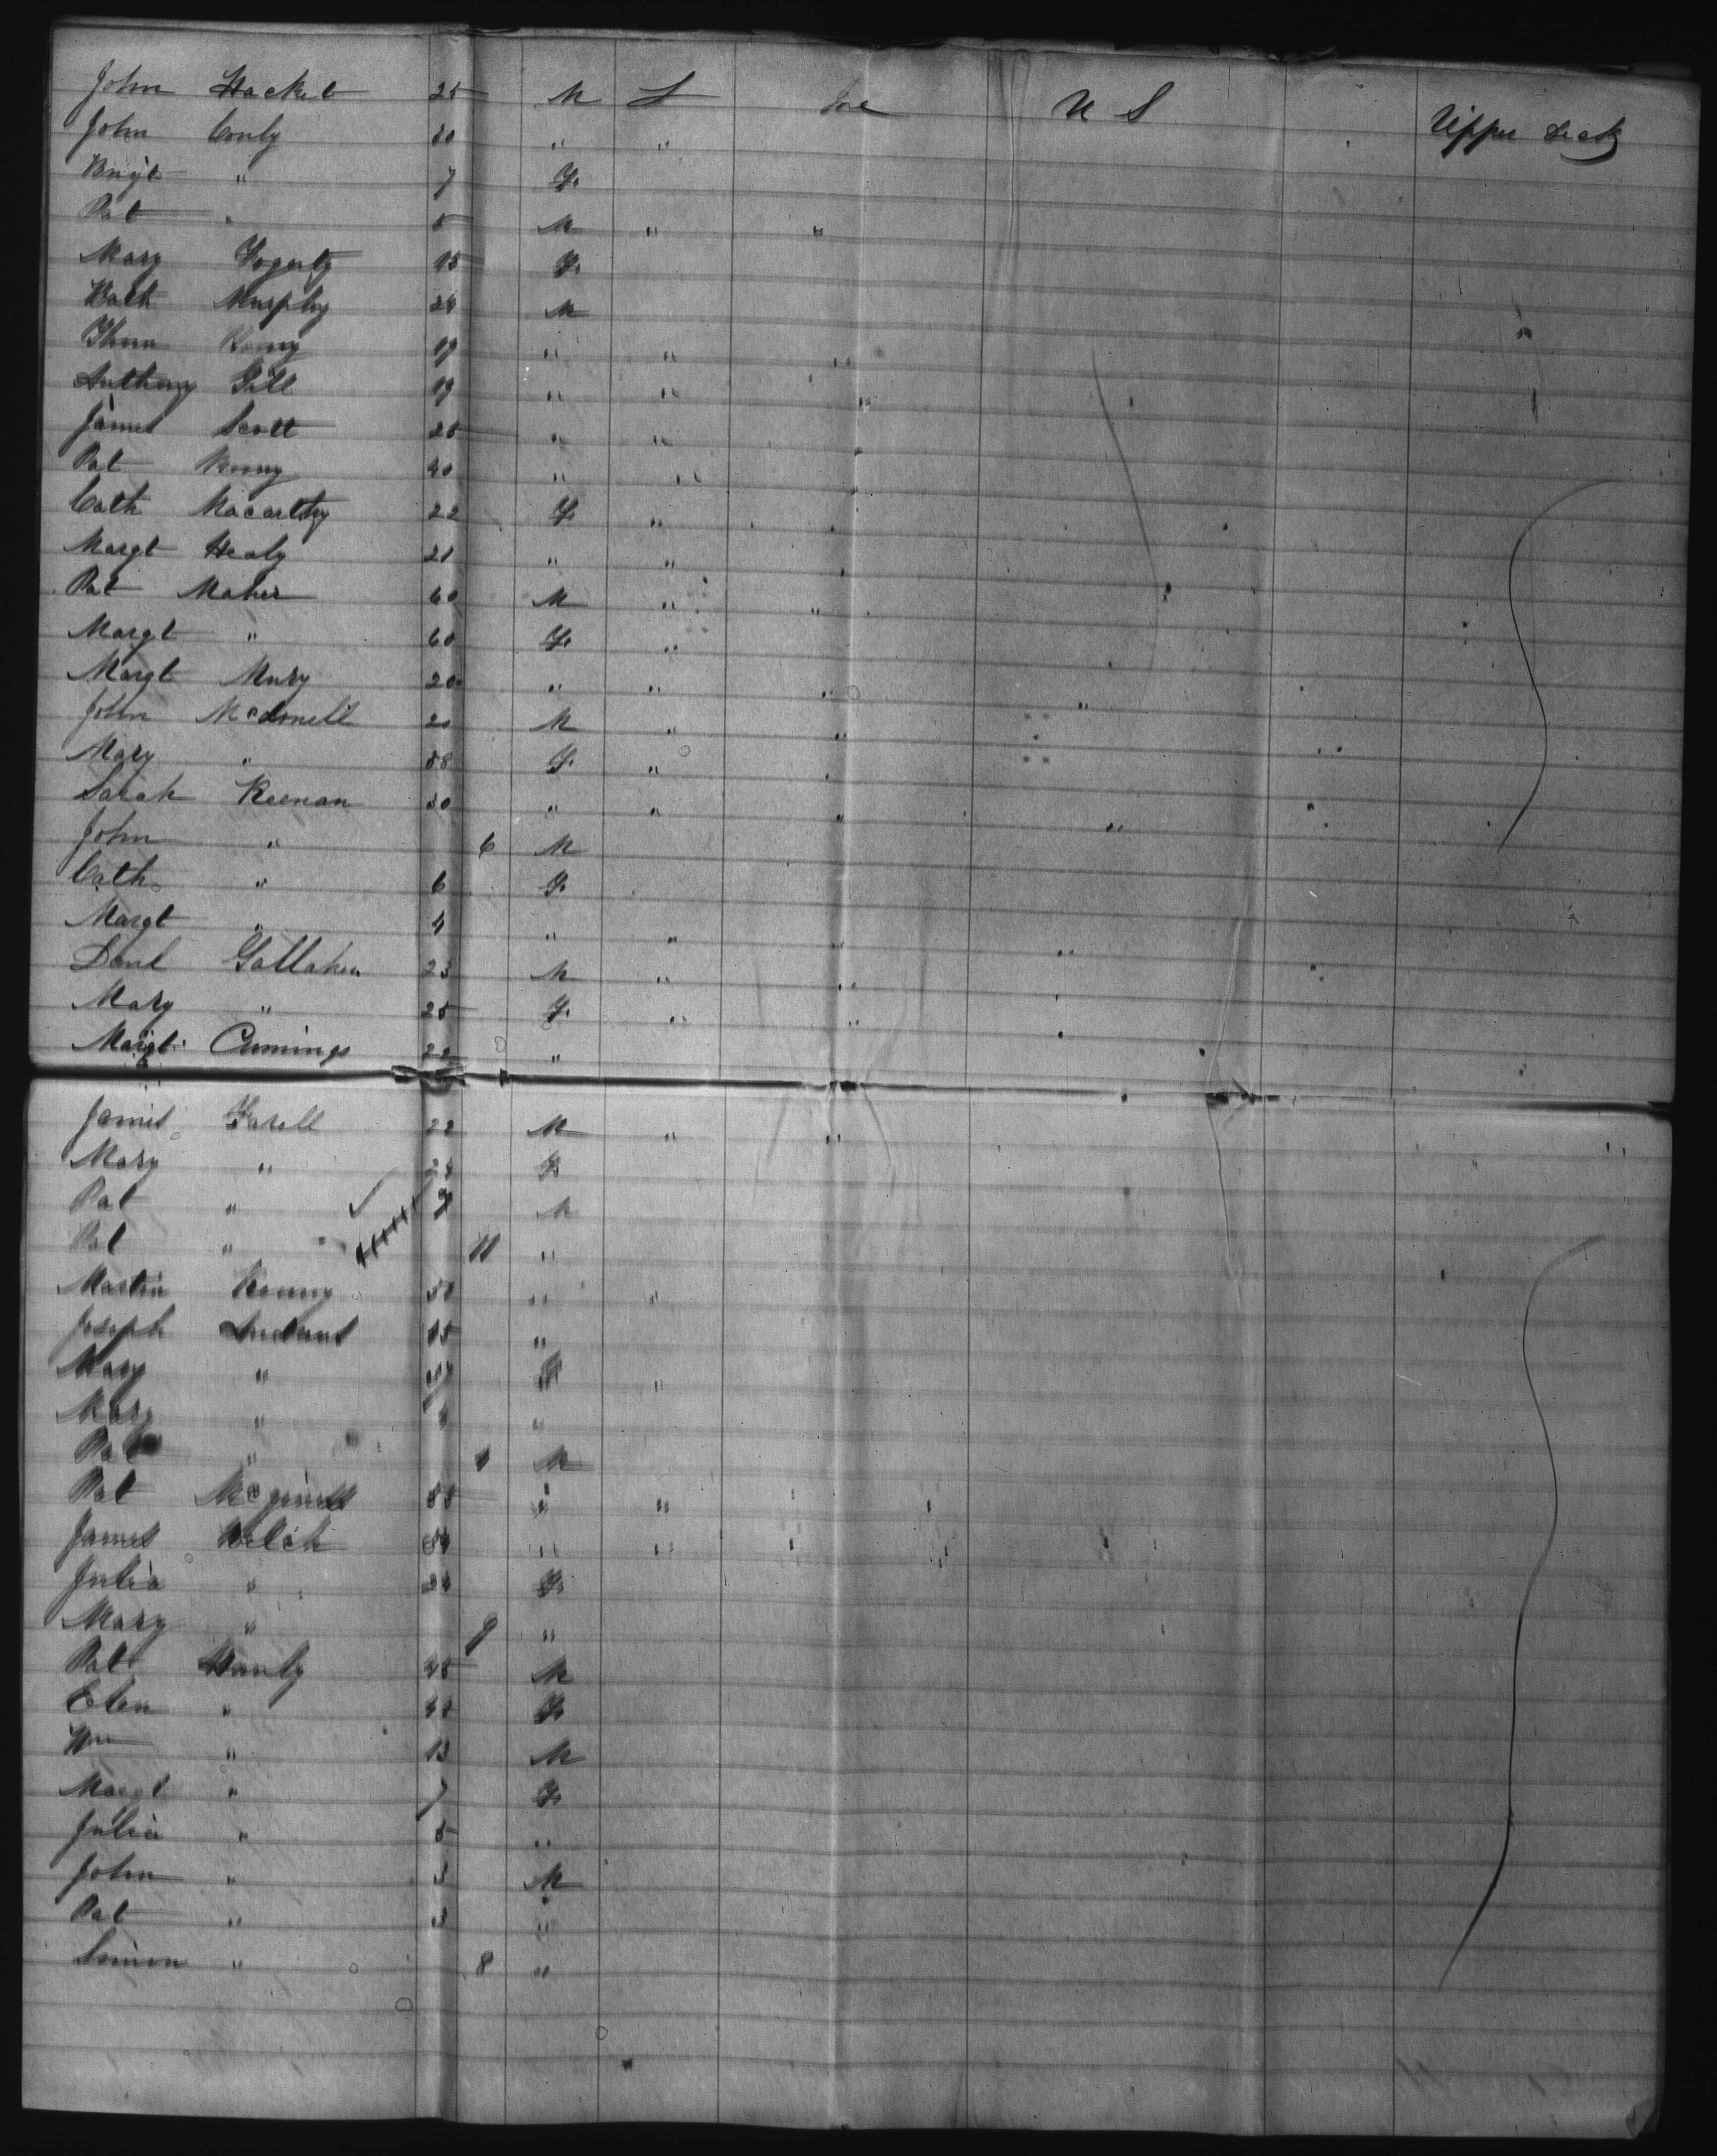 John Hacket 25 M L Ire U S Upper Deck
John Conly 30 " "
Brigt " 7 F.
Pat " 5 M " "
Mary Fogerty 15 F.
Math Murphy 24 M
Thos 19 " " "
Anthony Gill 19 " " "
James Scott 25 " "
Pat 40 " "
Cath Macarthy 22 F. "
Margt Healy 21 " "
Pat Maher 60 M " "
Margt " 60 F. "
Margt Mury 20 " " " "
John McDonell 20 M " "
Mary " 58 F. "
Sarah Keenan 30 " " " "
John " 6 M
Cath " 6 F.
Margt " 4 " " " "
Danl Gallaher 23 M " "
Mary " 25 F. " "
Margt Cumings 22 "
James Farell 22 M " "
Mary " 24 F.
Pat " M
Pat " 11 "
Martin 50 " "
Joseph 15 "
Mary " F "
Mary " "
Pat " M
Pat " "
James Welch " "
Julia " 24 F.
Mary " 9 "
Pat Hanly 45 M
Elen " 42 F.
Wm " 13 M
Margt " 7 F.
Julia " 5 "
John " 3 M
Pat " 3 "
Simon " 8 "